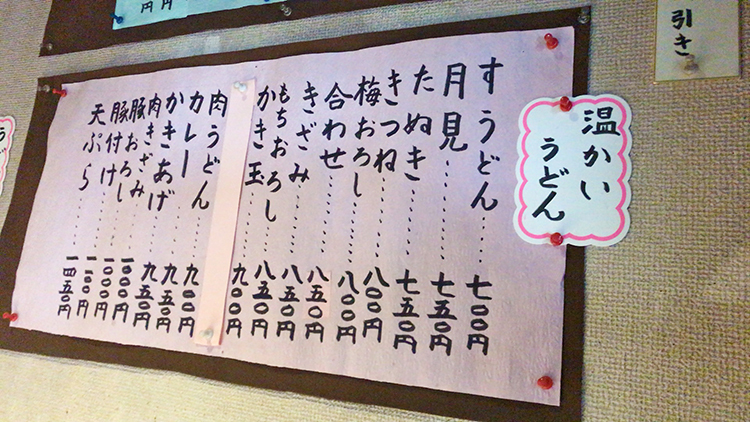 引き
温かい
うどん
すうどん……七〇〇円
月見……七五〇円
たぬき……七五〇円
きつね……八〇〇円
梅おろし……八〇〇円
合わせ……八五〇円
きざみ……八五〇円
もちおろし……八五〇円
かき玉……九〇〇円
肉うどん……九〇〇円
カレー……九五〇円
かきあげ……九五〇円
肉きざみ……一〇〇〇円
豚おろし……一〇〇〇円
豚付け……一一〇〇円
天ぷら……一四五〇円
円
円